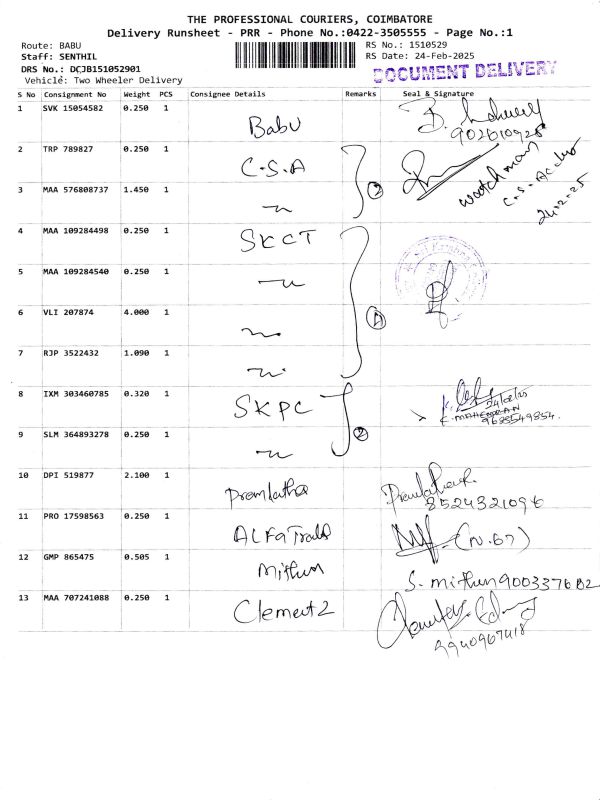 THE PROFESSIONAL COURIERS, COIMBATORE
Delivery Runsheet - PRR - Phone No.:0422-3505555 - Page No.:1
Route: BABU
RS No.: 1510529
Staff: SENTHIL
RS Date: 24-Feb-2025
DRS No.: DCJB151052901
DOCUMENT DELIVERY
Vehicle: Two Wheeler Delivery
S No Consignment No Weight PCS Consignee Details Remarks Seal & Signature
1 SVK 15054582 0.250 1 Babu
2 TRP 789827 0.250 1 C.S.A
watchman
24.02.25
3 MAA 576808737 1.450 1 2
4 MAA 109284498 0.250 1 SKCT
5 MAA 109284540 0.250 1
6 VLI 207874 4.000 1 4
7 RJP 3522432 1.090 1
8 IXM 303460785 0.320 1 SKPC
9 SLM 364893278 0.250 1 2
10 DPI 519877 2.100 1 Premlatha
8524321096
11 PRO 17598563 0.250 1 (N.67)
12 GMP 865475 0.505 1 Mithun S. mithun
13 MAA 707241088 0.250 1
9940967418